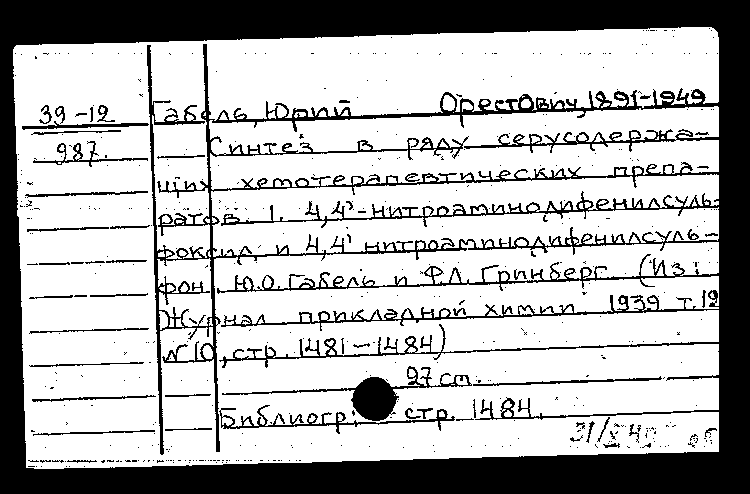 39-12 Габель, Юрий Орестович, 1891-1949
987. Синтез в ряду серусодержа-
щих хемотерапевтических препа-
ратов. I. 4,4'-нитроаминодифенилсуль-
фоксид и 4,4' нитроаминодифенилсуль-
фон. Ю.О. Габель и Ф.Л. Гринберг (Из:
Журнал прикладной химии. 1939 т. 12
№ 10, стр. 1481-1484)
27 см.
Библиогр: стр. 1484.
31/X 49